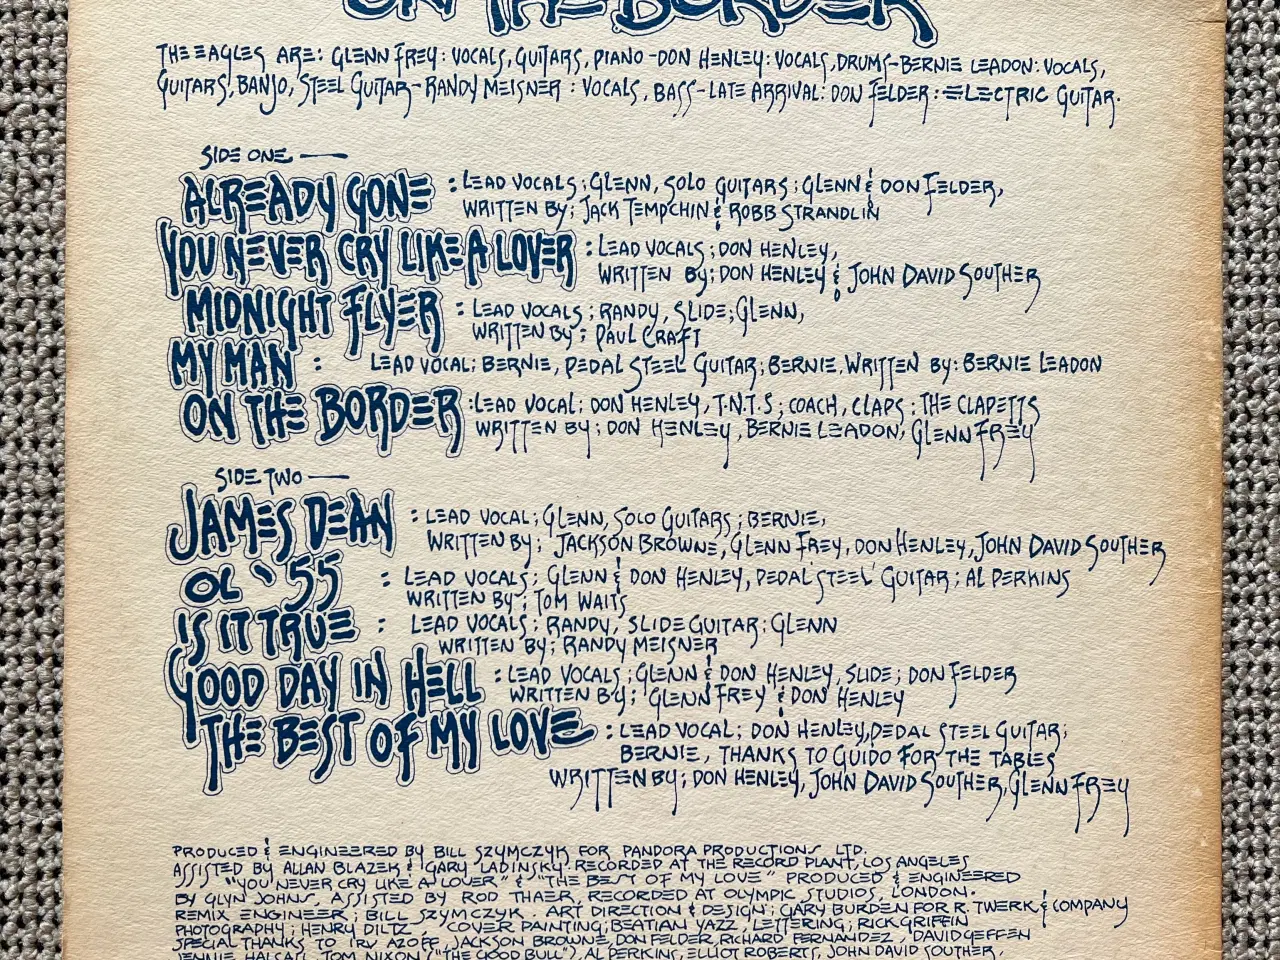 ON THE BORDER
THE EAGLES ARE: GLENN FREY: VOCALS, GUITARS, PIANO - DON HENLEY: VOCALS, DRUMS - BERNIE LEADON: VOCALS,
GUITARS, BANJO, STEEL GUITAR - RANDY MEISNER : VOCALS, BASS - LATE ARRIVAL: DON FELDER : ELECTRIC GUITAR.
SIDE ONE —
ALREADY GONE : LEAD VOCALS; GLENN, SOLO GUITARS; GLENN & DON FELDER,
WRITTEN BY; JACK TEMPCHIN & ROBB STRANDLIN
YOU NEVER CRY LIKE A LOVER : LEAD VOCALS; DON HENLEY,
WRITTEN BY; DON HENLEY & JOHN DAVID SOUTHER
MIDNIGHT FLYER : LEAD VOCALS; RANDY, SLIDE; GLENN,
WRITTEN BY; PAUL CRAFT
MY MAN : LEAD VOCAL; BERNIE, PEDAL STEEL GUITAR; BERNIE, WRITTEN BY: BERNIE LEADON
ON THE BORDER : LEAD VOCAL; DON HENLEY, T.N.T.S; COACH, CLAPS; THE CLAPETTS
WRITTEN BY; DON HENLEY, BERNIE LEADON, GLENN FREY
SIDE TWO —
JAMES DEAN : LEAD VOCAL; GLENN, SOLO GUITARS; BERNIE,
WRITTEN BY; JACKSON BROWNE, GLENN FREY, DON HENLEY, JOHN DAVID SOUTHER
OL '55 : LEAD VOCALS; GLENN & DON HENLEY, PEDAL STEEL GUITAR; AL PERKINS
WRITTEN BY; TOM WAITS
IS IT TRUE : LEAD VOCALS; RANDY, SLIDE GUITAR; GLENN
WRITTEN BY; RANDY MEISNER
GOOD DAY IN HELL : LEAD VOCALS; GLENN & DON HENLEY, SLIDE; DON FELDER
WRITTEN BY; GLENN FREY & DON HENLEY
THE BEST OF MY LOVE : LEAD VOCAL; DON HENLEY, PEDAL STEEL GUITAR;
BERNIE, THANKS TO GUIDO FOR THE TABLES
WRITTEN BY; DON HENLEY, JOHN DAVID SOUTHER, GLENN FREY
PRODUCED & ENGINEERED BY BILL SZYMCZYK FOR PANDORA PRODUCTIONS LTD.
ASSISTED BY ALLAN BLAZEK & GARY LADINSKY. RECORDED AT THE RECORD PLANT, LOS ANGELES
"YOU NEVER CRY LIKE A LOVER" & "THE BEST OF MY LOVE" PRODUCED & ENGINEERED
BY GLYN JOHNS, ASSISTED BY ROD THAER, RECORDED AT OLYMPIC STUDIOS, LONDON.
REMIX ENGINEER; BILL SZYMCZYK. ART DIRECTION & DESIGN; GARY BURDEN FOR R. TWERK & COMPANY
PHOTOGRAPHY; HENRY DILTZ, COVER PAINTING; BEATIAN YAZZ, LETTERING; RICK GRIFFIN
SPECIAL THANKS TO IRV AZOFF, JACKSON BROWNE, DON FELDER, RICHARD FERNANDEZ, DAVID GEFFEN
JENNIE HALSALL, TOM NIXON ("THE GOOD BULL"), AL PERKINS, ELLIOT ROBERTS, JOHN DAVID SOUTHER,